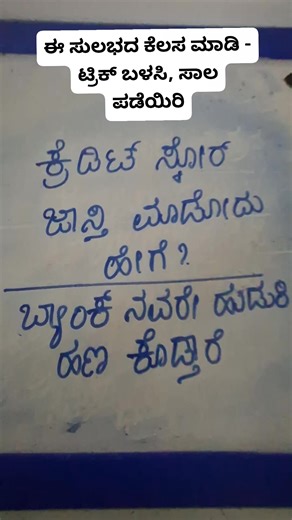 ಈ ಸುಲಭದ ಕೆಲಸ ಮಾಡಿ -
ಟ್ರಿಕ್ ಬಳಸಿ, ಸಾಲ
ಪಡೆಯಿರಿ
ಕ್ರೆಡಿಟ್ ಸ್ಕೋರ್
ಜಾಸ್ತಿ ಮಾಡೋದು
ಹೇಗೆ?
ಬ್ಯಾಂಕ್ ನವರೇ ಹುಡುಕಿ
ಹಣ ಕೊಡ್ತಾರೆ